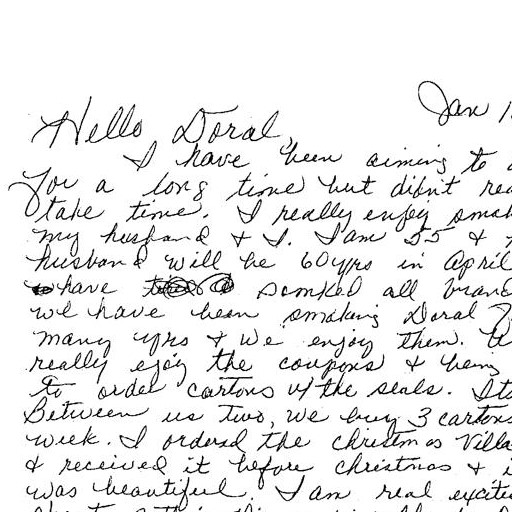 Jan 1
Hello Doral,
I have been aiming to
for a long time but didn't
take time. I really enjoy
my husband & I. I am 55 &
husband will be 60 yrs in April
have smoked all
we have been smoking Doral
many yrs & we enjoy them.
really ejoy the coupons & being
to order cartons w/ the seals. Its
Between us two, we buy 3 cartons
week. I ordered the christmas Villa
& received it before christmas &
was beautiful. I am real